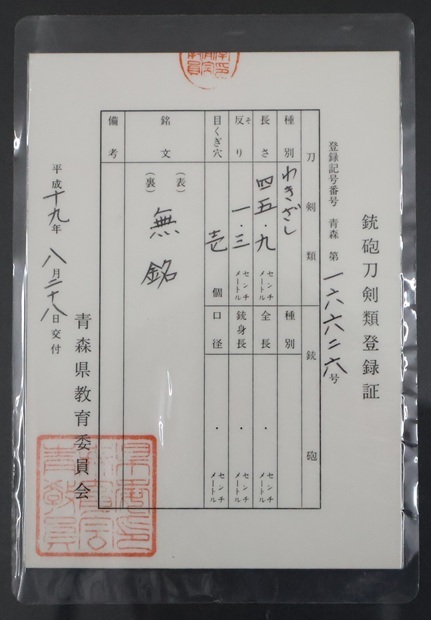 銃砲刀剣類登録証
登録記号番号 青森 第一六六二六号
刀剣類
種別 わきざし
長さ 四五・九 センチメートル
反り そ 一・三 センチメートル
目くぎ穴 壱個
銃砲
種別
全長 ・ センチメートル
銃身長 ・ センチメートル
口径 ・ センチメートル
銘文 (表) 無銘
(裏)
備考
平成十九年 八月二十八日交付
青森県教育委員会